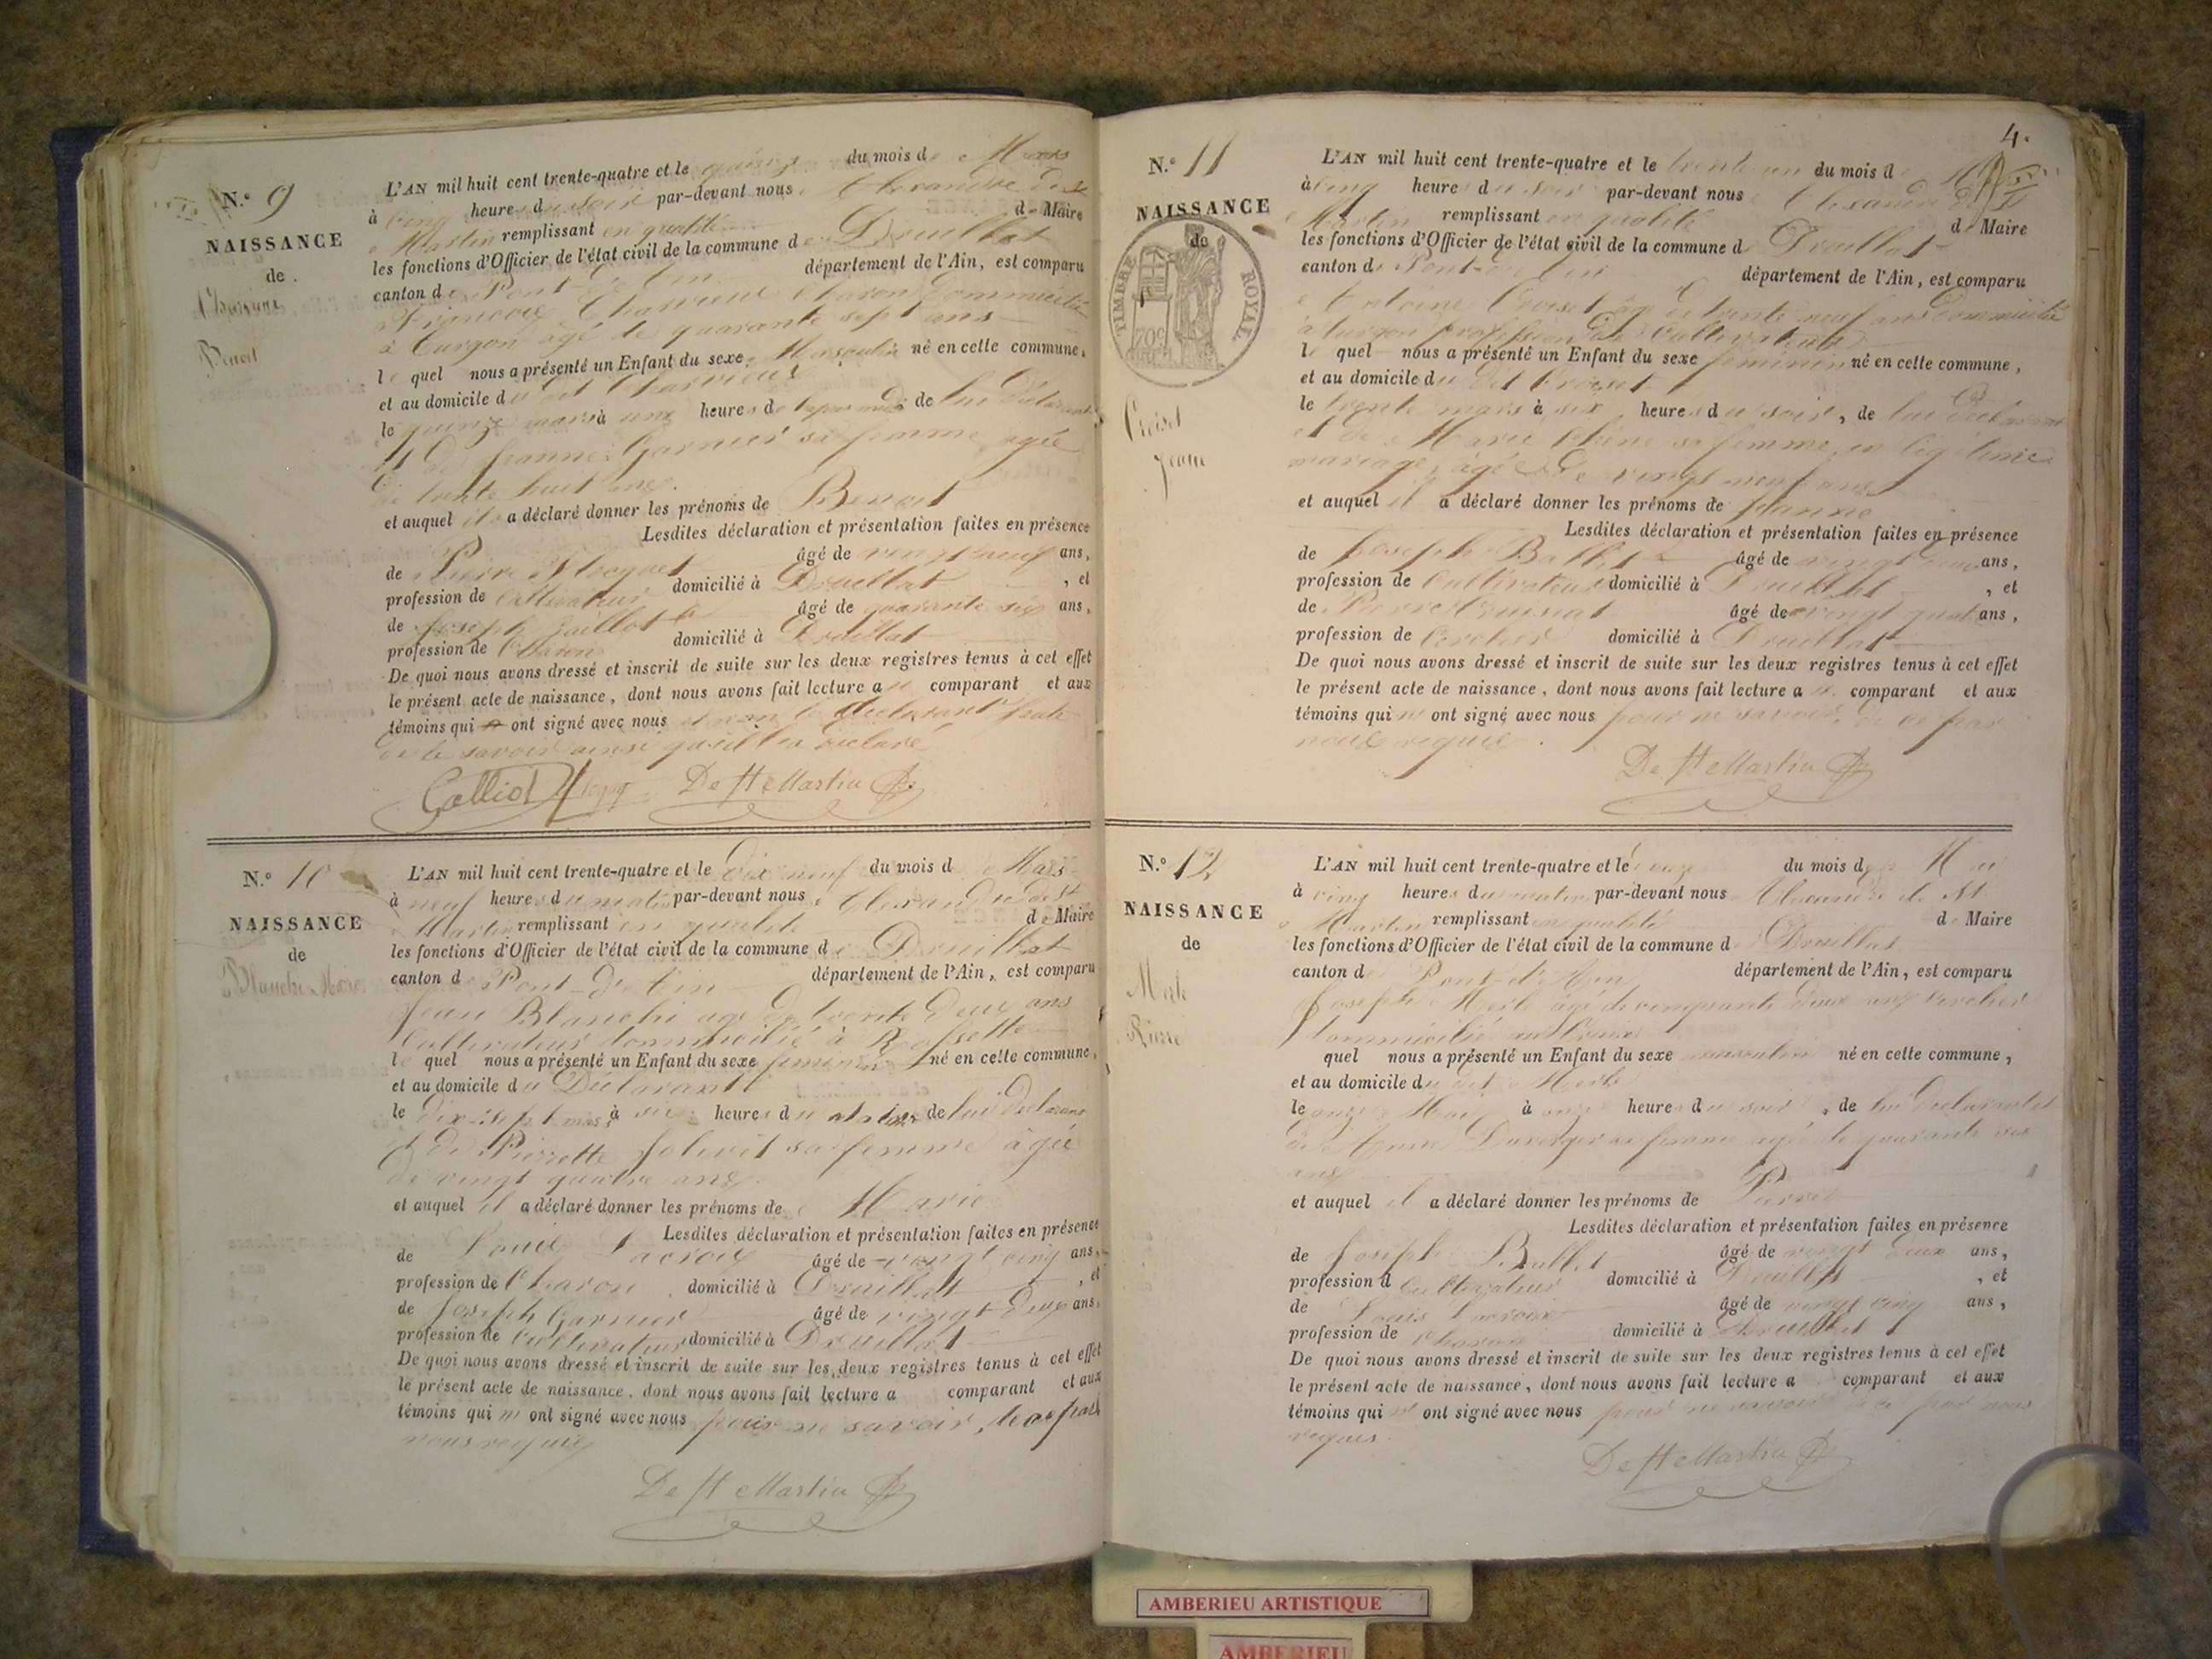 N.° 9
NAISSANCE
de
Benoit
L'AN mil huit cent trente-quatre et le quinze du mois de Mars
à cinq heures du soir par-devant nous Alexandre de St
Martin remplissant en qualité de Maire
les fonctions d'Officier de l'état civil de la commune de Druillat
canton de Pont-d'Ain département de l'Ain, est comparu
François Charvieux charon domicilié
à Turgon agé de quarante sept ans
le quel nous a présenté un Enfant du sexe Masculin né en cette commune,
et au domicile du dit Charvieux
le quinze mars à une heure de lui Déclarant
et de Jeanne Garnier sa femme agée
de trente huit ans.
et auquel il a déclaré donner les prénoms de Benoit
Lesdites déclaration et présentation faites en présence
de Pierre âgé de vingt neuf ans,
profession de Cultivateur domicilié à Druillat , et
de Joseph âgé de quarante six ans,
profession de domicilié à Druillat
De quoi nous avons dressé et inscrit de suite sur les deux registres tenus à cet effet
le présent acte de naissance, dont nous avons fait lecture au comparant et aux
témoins qui ont signé avec nous et non le déclarant faute
de le savoir ainsi qu'il l'a déclaré
Galliot De St Martin
N.° 10
NAISSANCE
de
Blanche Marie
L'AN mil huit cent trente-quatre et le Dix neuf du mois de Mars
à neuf heures du matin par-devant nous Alexandre de St
Martin remplissant en qualité de Maire
les fonctions d'Officier de l'état civil de la commune de Druillat
canton de Pont-d'Ain département de l'Ain, est comparu
Jean Blanche agé de trente Deux ans
Cultivateur domicilié à Rossette
le quel nous a présenté un Enfant du sexe feminin né en cette commune,
et au domicile du Déclarant
le dix-sept mars à six heures du matin de lui Déclarant
et de Pierrette Jolivet sa femme âgée
de vingt quatre ans.
et auquel il a déclaré donner les prénoms de Marie
Lesdites déclaration et présentation faites en présence
de Louis Lacroix âgé de vingt cinq ans,
profession de Charon domicilié à Druillat , et
de Joseph Garnier âgé de vingt Deux ans,
profession de Cultivateur domicilié à Druillat
De quoi nous avons dressé et inscrit de suite sur les deux registres tenus à cet effet
le présent acte de naissance, dont nous avons fait lecture a comparant et aux
témoins qui n'ont signé avec nous pour ne savoir, de ce par
nous requis
De St Martin
4.
N.° 11
NAISSANCE
de
TIMBRE ROYAL
70c
Croiset
Jeanne
L'AN mil huit cent trente-quatre et le trente un du mois de Mars
à cinq heures du soir par-devant nous Alexandre de St
Martin remplissant en qualité de Maire
les fonctions d'Officier de l'état civil de la commune de Druillat
canton de Pont-d'Ain département de l'Ain, est comparu
Antoine Croiset âgé de trente neuf ans domicilié
à Turgon profession de Cultivateur
le quel nous a présenté un Enfant du sexe feminin né en cette commune,
et au domicile du dit Croiset
le trente mars à six heures du soir, de lui Déclarant
et de Marie sa femme en légitime
mariage, âgée de vingt neuf ans
et auquel il a déclaré donner les prénoms de Jeanne
Lesdites déclaration et présentation faites en présence
de Joseph Ballet âgé de vingt deux ans,
profession de Cultivateur domicilié à Druillat , et
de Pierre âgé de vingt quatre ans,
profession de domicilié à Druillat
De quoi nous avons dressé et inscrit de suite sur les deux registres tenus à cet effet
le présent acte de naissance, dont nous avons fait lecture au comparant et aux
témoins qui n'ont signé avec nous pour ne savoir, de ce par
nous requis.
De St Martin
N.° 12
NAISSANCE
de
Merle
Pierre
L'AN mil huit cent trente-quatre et le douze du mois de Mai
à cinq heures du matin par-devant nous Alexandre de St
Martin remplissant en qualité de Maire
les fonctions d'Officier de l'état civil de la commune d Druillat
canton d Pont-d'Ain département de l'Ain, est comparu
Joseph Merle âgé de cinquante deux ans
domicilié
quel nous a présenté un Enfant du sexe masculin né en cette commune,
et au domicile du dit Merle
le onze Mai à onze heures du soir, de lui Déclarant et
de Anne Duverger sa femme agée de quarante six
ans
et auquel il a déclaré donner les prénoms de Pierre
Lesdites déclaration et présentation faites en présence
de Joseph Ballet âgé de vingt deux ans,
profession d Cultivateur domicilié à Druillat , et
de Louis Lacroix âgé de vingt cinq ans,
profession de Charon domicilié à Druillat
De quoi nous avons dressé et inscrit de suite sur les deux registres tenus à cet effet
le présent acte de naissance, dont nous avons fait lecture a comparant et aux
témoins qui n'ont signé avec nous pour ne savoir de ce par nous
requis.
De St Martin
AMBERIEU ARTISTIQUE
AMBERIEU